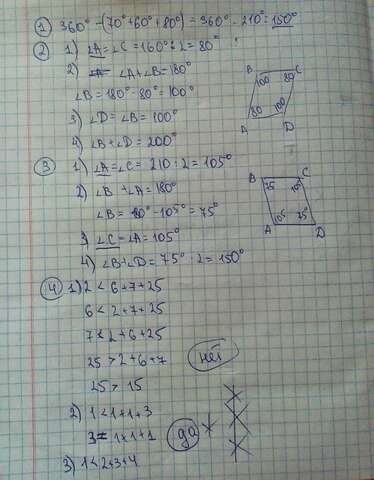 ① 360° - (70° + 60° + 80°) = 360° - 210° = 150°
② 1) ∠A = ∠C = 160° : 2 = 80°
2) ∠A + ∠B = 180°
∠B = 180° - 80° = 100°
3) ∠D = ∠B = 100°
4) ∠B + ∠D = 200°
B C
100 80
80 100
A D
③ 1) ∠A = ∠C = 210 : 2 = 105°
2) ∠B + ∠A = 180°
∠B = 180° - 105° = 75°
3) ∠C = ∠A = 105°
4) ∠B + ∠D = 75° · 2 = 150°
B C
75 105
105 75°
A D
④ 1) 2 < 6 + 7 + 25
6 < 2 + 7 + 25
7 < 2 + 6 + 25
25 > 2 + 6 + 7
нет
25 > 15
2) 1 < 1 + 1 + 3
3 = 1 + 1 + 1
да
3) 1 < 2 + 3 + 4